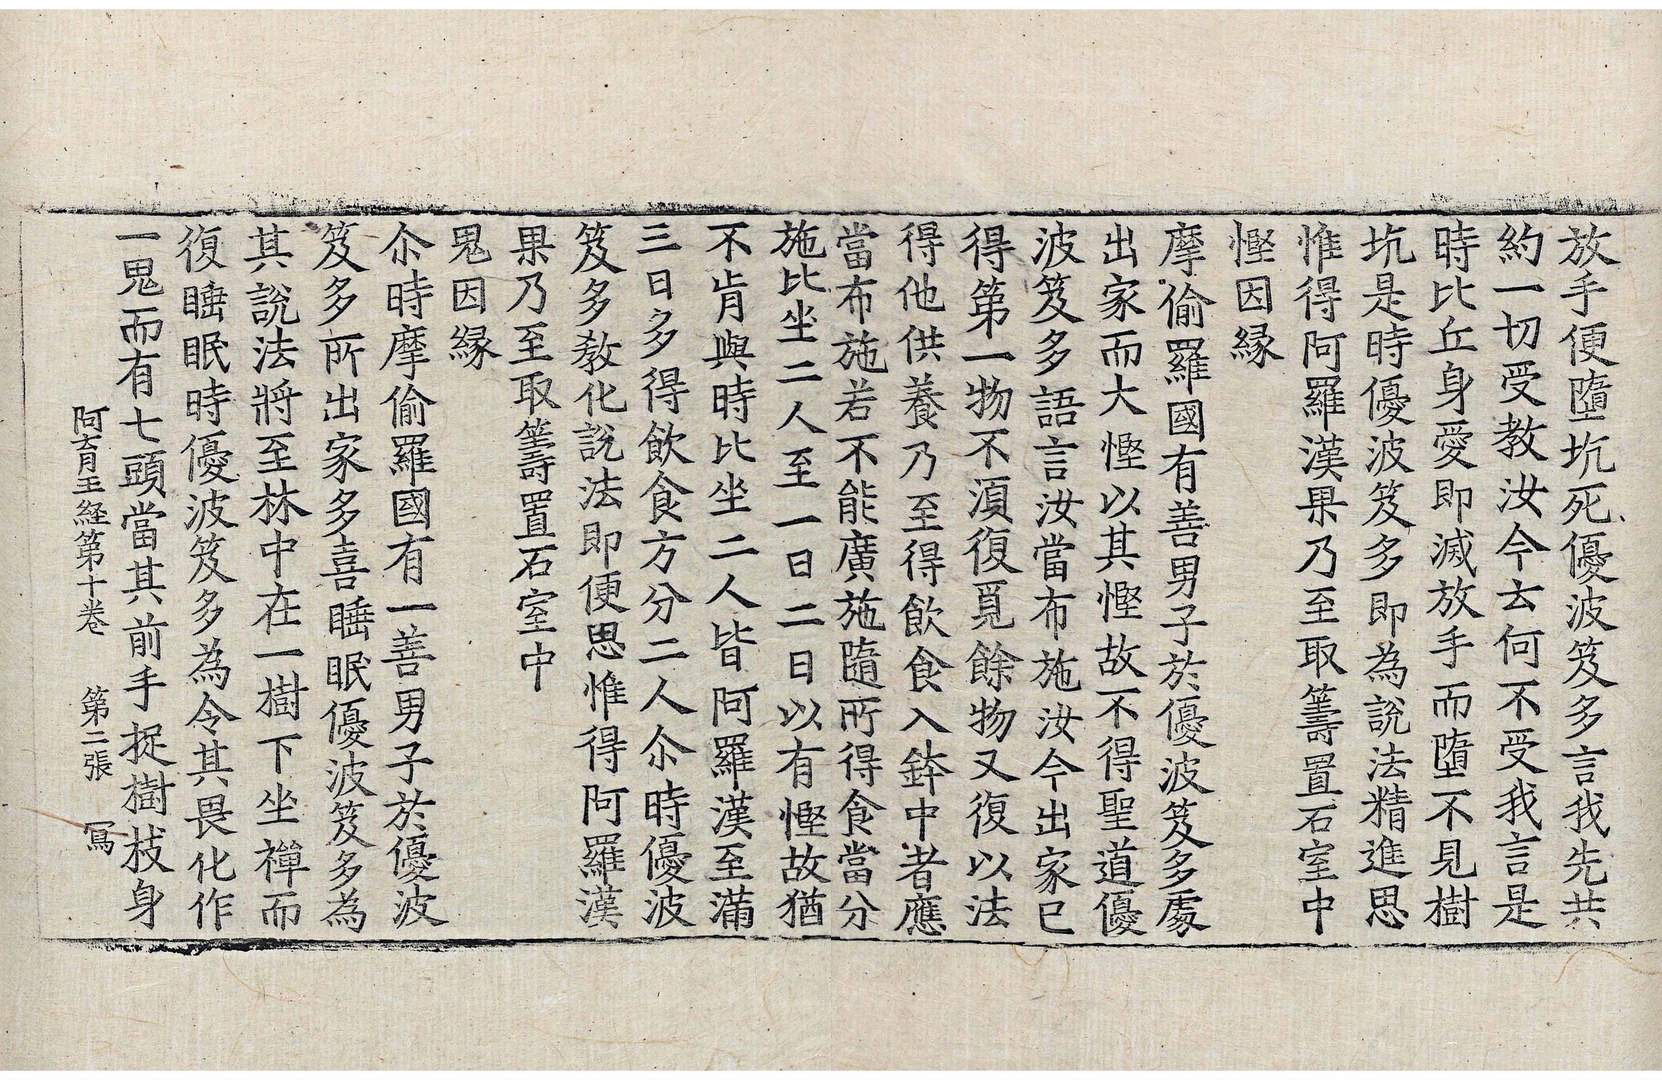 放手便墮坑死優波笈多言我先共
約一切受教汝今云何不受我言是
時比丘身愛即滅放手而墮不見樹
坑是時優波笈多即為說法精進思
惟得阿羅漢果乃至取籌置石室中
慳因縁
摩偷羅國有善男子於優波笈多處
出家而大慳以其慳故不得聖道優
波笈多語言汝當布施汝今出家已
得第一物不湏復覓餘物又復以法
得他供養乃至得飲食入鉢中者應
當布施若不能廣施隨所得食當分
施比坐二人至一日二日以有慳故猶
不肯與時比坐二人皆阿羅漢至滿
三日多得飲食方分二人尒時優波
笈多教化說法即便思惟得阿羅漢
果乃至取籌置石室中
鬼因縁
尒時摩偷羅國有一善男子於優波
笈多所出家多喜睡眠優波笈多為
其說法將至林中在一樹下坐禪而
復睡眠時優波笈多為令其畏化作
一鬼而有七頭當其前手捉樹枝身
阿育王経第十卷 第二張 寫